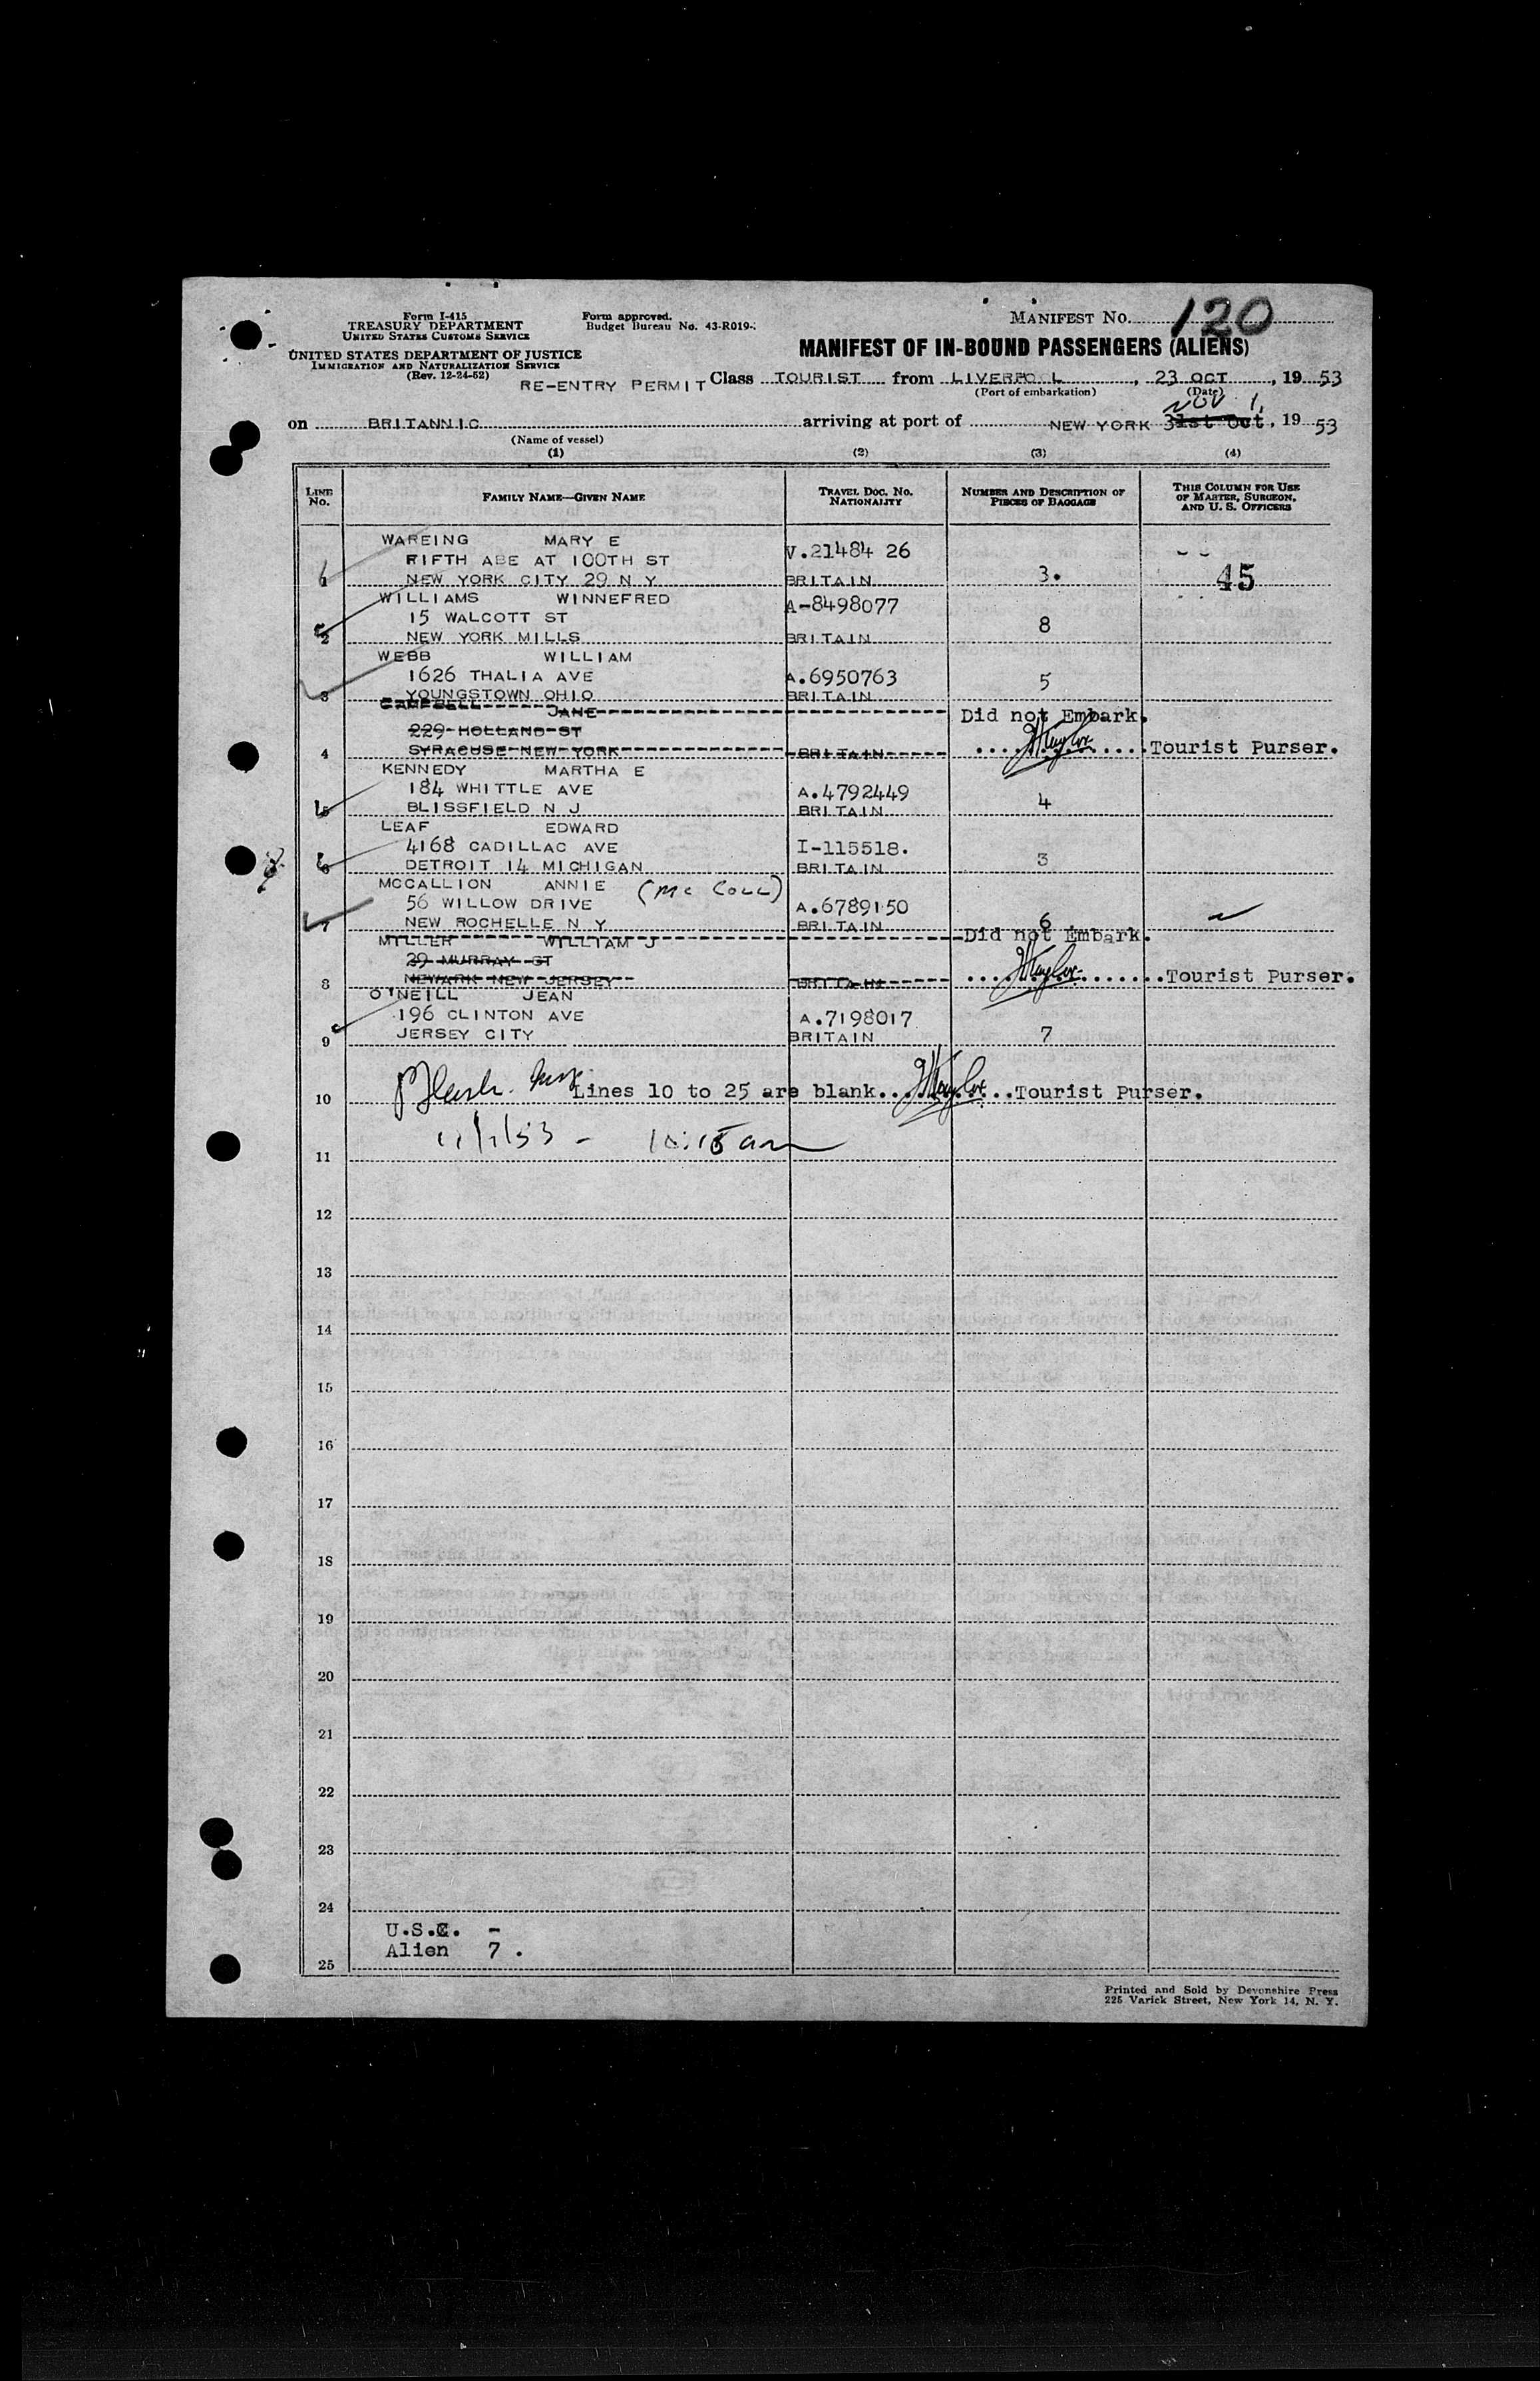 Form I-415
TREASURY DEPARTMENT
UNITED STATES CUSTOMS SERVICE
UNITED STATES DEPARTMENT OF JUSTICE
IMMIGRATION AND NATURALIZATION SERVICE
(Rev. 12-24-52)
Form approved.
Budget Bureau No. 43-R019-
MANIFEST NO. 120
MANIFEST OF IN-BOUND PASSENGERS (ALIENS)
RE-ENTRY PERMIT Class TOURIST from LIVERPOOL, 23 OCT, 19 53
(Port of embarkation) (Date)
NOV 1,
on BRITANNIC arriving at port of NEW YORK 31st Oct, 19 53
(Name of vessel)
(1) (2) (3) (4)
LINE NO. FAMILY NAME—GIVEN NAME TRAVEL DOC. NO. NATIONALITY NUMBER AND DESCRIPTION OF PIECES OF BAGGAGE THIS COLUMN FOR USE OF MASTER, SURGEON, AND U. S. OFFICERS
WAREING MARY E
FIFTH ABE AT 100TH ST V.21484 26
1 NEW YORK CITY 29 N Y BRITAIN 3. 45
WILLIAMS WINNEFRED A-8498077
15 WALCOTT ST 8
2 NEW YORK MILLS BRITAIN
WEBB WILLIAM
1626 THALIA AVE A.6950763 5
3 YOUNGSTOWN OHIO BRITAIN
CAMPBELL JANE Did not Embark.
229 HOLLAND ST
4 SYRACUSE NEW YORK BRITAIN Tourist Purser.
KENNEDY MARTHA E
184 WHITTLE AVE A.4792449
5 BLISSFIELD N J BRITAIN 4
LEAF EDWARD
4168 CADILLAC AVE I-115518.
6 DETROIT 14 MICHIGAN BRITAIN 3
MCCALLION ANNIE (Mc Coll)
56 WILLOW DRIVE A.6789150
7 NEW ROCHELLE N Y BRITAIN 6
MILLER WILLIAM J Did not Embark.
29 MURRAY ST
8 NEWARK NEW JERSEY BRITAIN Tourist Purser.
O'NEILL JEAN
196 CLINTON AVE A.7198017
9 JERSEY CITY BRITAIN 7
10 Lines 10 to 25 are blank. Tourist Purser.
11/1/53 - 10:15 am
11
12
13
14
15
16
17
18
19
20
21
22
23
24
U.S.C. -
Alien 7 .
25
Printed and Sold by Devonshire Press
225 Varick Street, New York 14, N. Y.